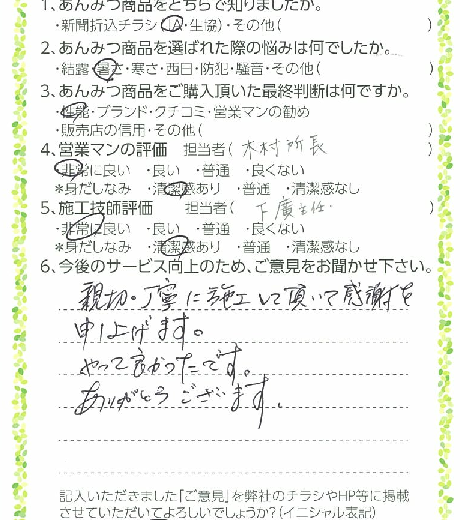 1、あんみつ商品をどちらで知りましたか。
・新聞折込チラシ・JA・生協)・その他( )
2、あんみつ商品を選ばれた際の悩みは何でしたか。
・結露・暑さ・寒さ・西日・防犯・騒音・その他( )
3、あんみつ商品をご購入頂いた最終判断は何ですか。
・性能・ブランド・クチコミ・営業マンの勧め
・販売店の信用・その他( )
4、営業マンの評価 担当者( 木村所長 )
・非常に良い ・良い ・普通 ・良くない
*身だしなみ ・清潔感あり ・普通 ・清潔感なし
5、施工技師評価 担当者( 下廣主任 )
・非常に良い ・良い ・普通 ・良くない
*身だしなみ ・清潔感あり ・普通 ・清潔感なし
6、今後のサービス向上のため、ご意見をお聞かせ下さい。
親切・丁寧に施工して頂いて感謝を
申し上げます。
やって良かったです。
ありがとうございます。
記入いただきました「ご意見」を弊社のチラシやHP等に掲載
させていただいてよろしいでしょうか?(イニシャル表記)